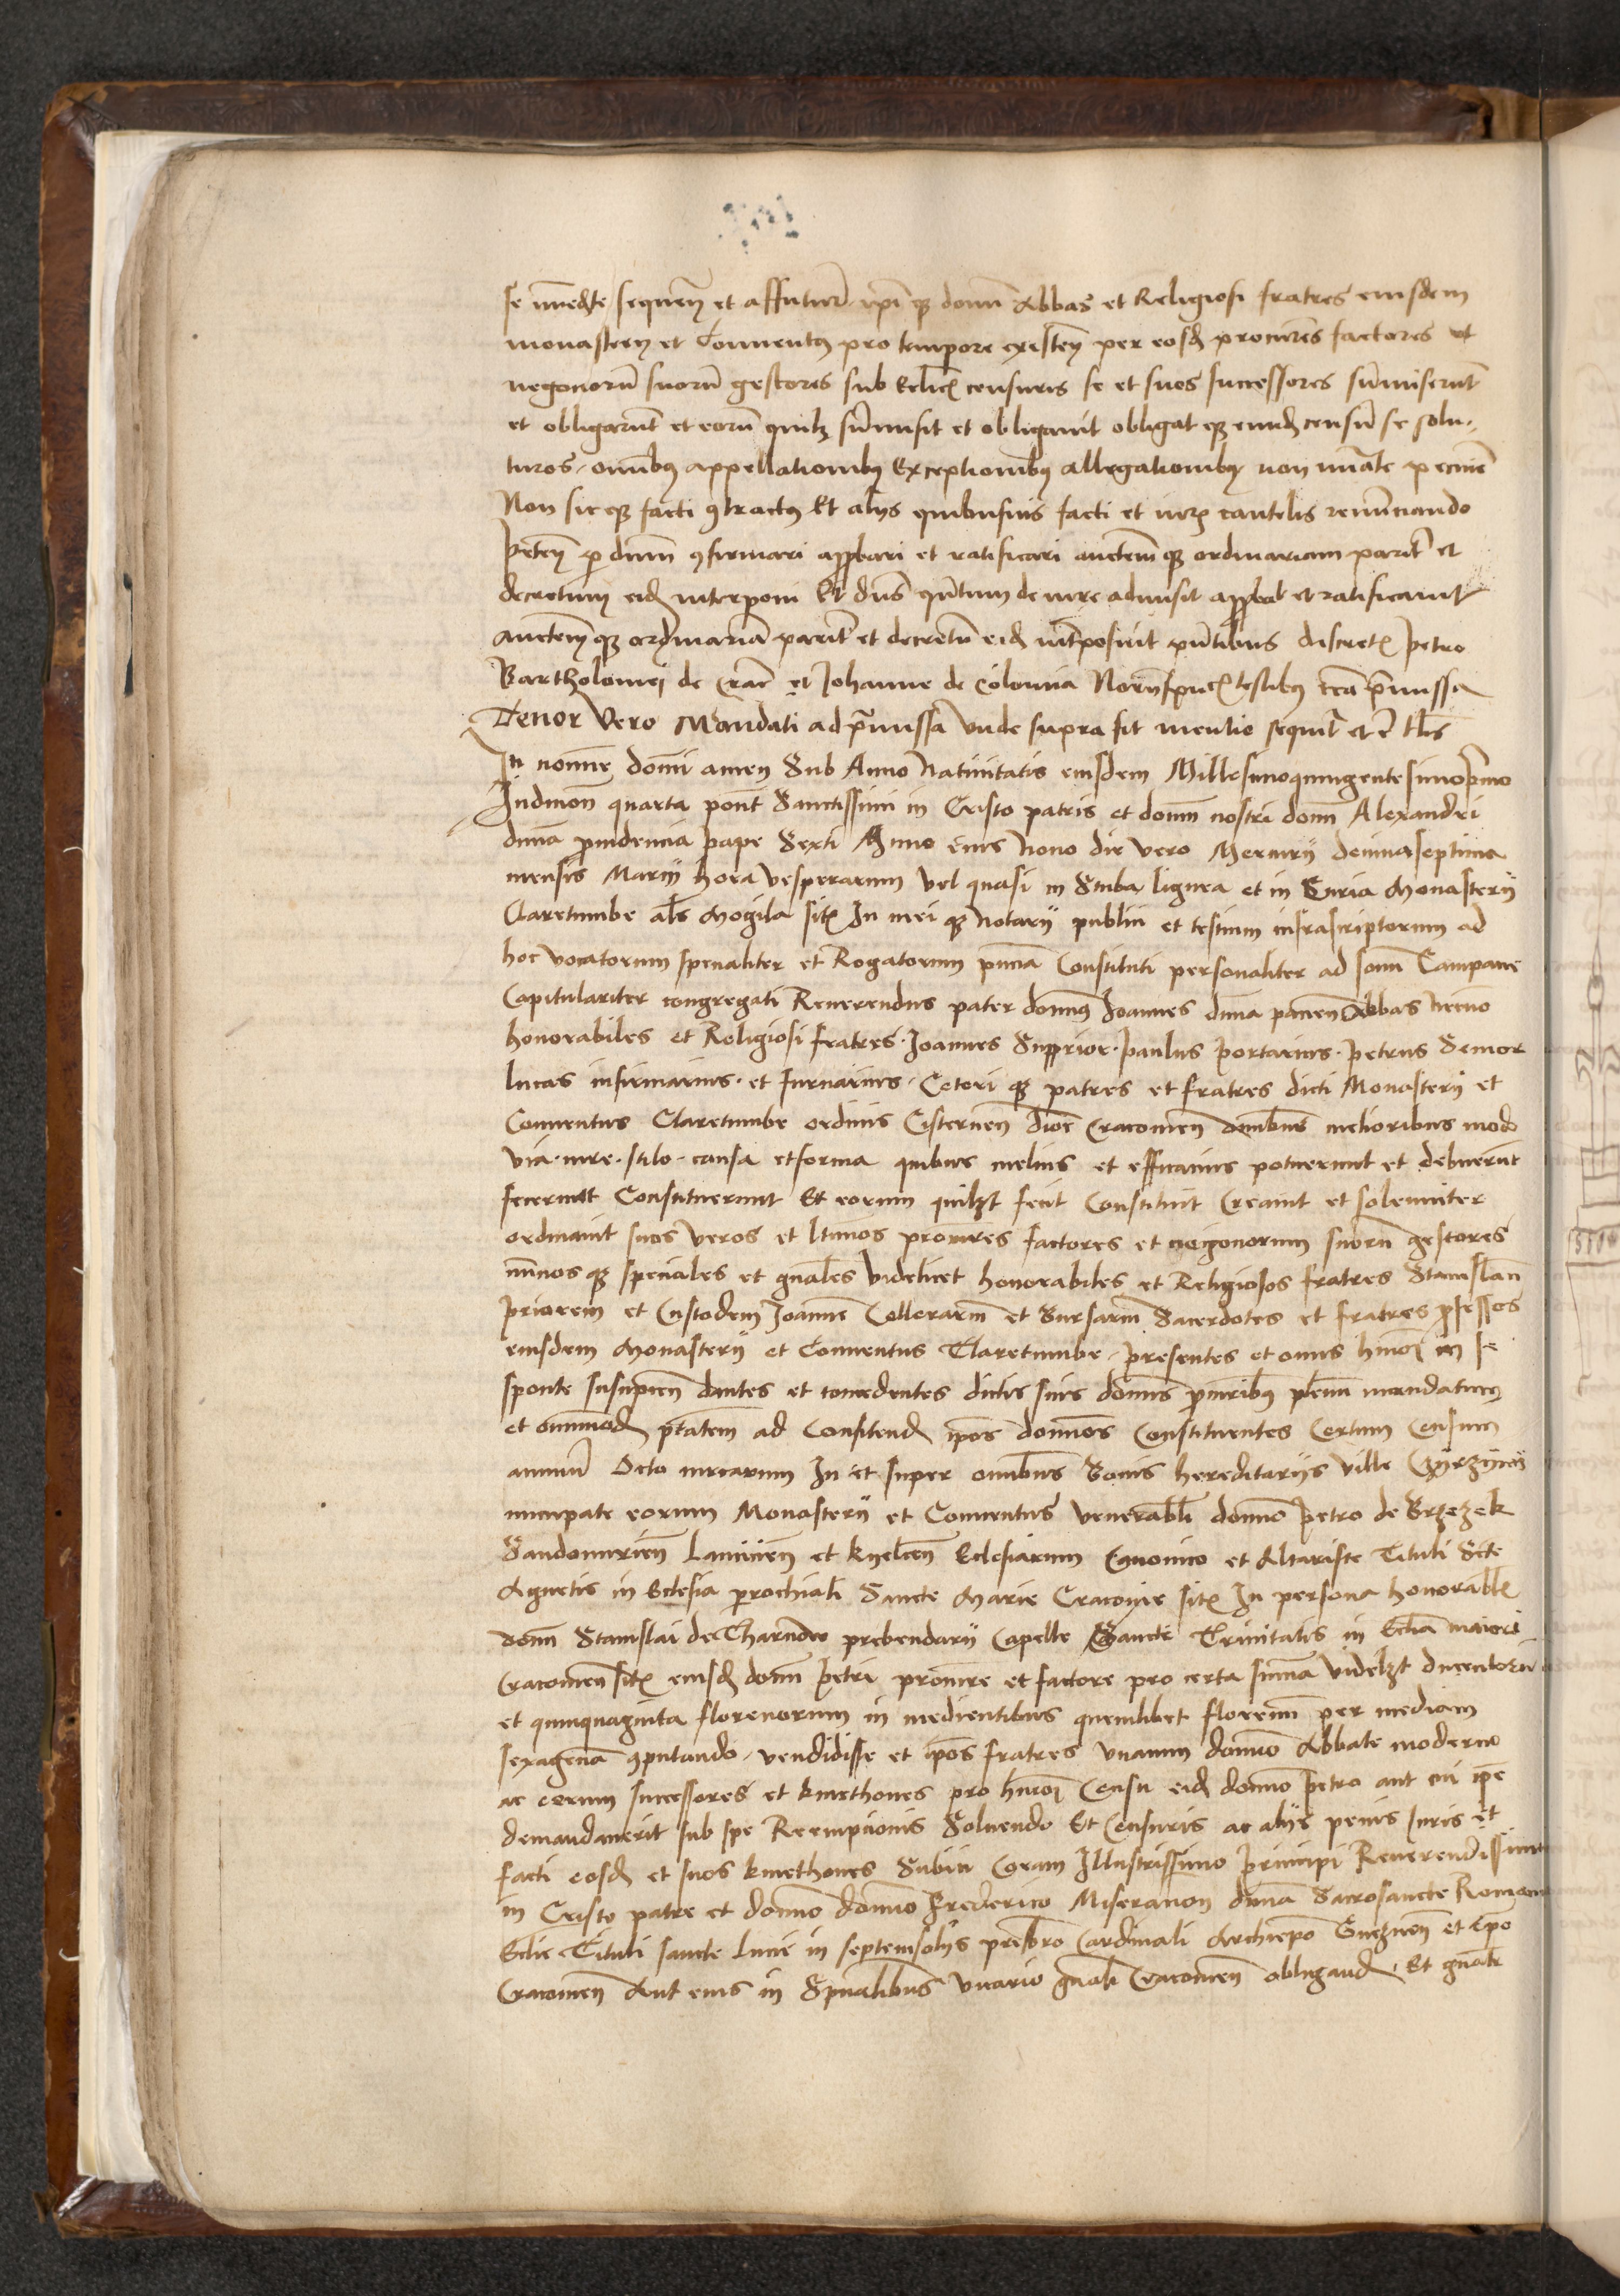 se immediate sequen̄ et affutur̄ ip̄i q̨ domn̄ Abbas et Religiosi fratres eiusdem
monastery et Conuentus pro tempore existen̄ per eosd̄ procures factores et
negociorū suorū gestores sub Ecl̄ic̄ censuris se et suos successores sūmiserūt
et obligarūt et eorū quilz sūmisit et obligauit obligat q̨ eund̄ censū se solu-
turos omibꝰ appellationibꝰ Exceptionibꝰ allegationibꝰ non nūate pecunie
Non sic q̨ facti ꝯtractꝰ Et alijs quibusuis facti et iur̄ cautelis renūnciando
Peten̄ p dnm̄ ꝯfirmari appbari et ratificari auctem̄ q̨ ordinariam parit̄ et
decretum eid̄ interponi Et dn̄s qn̄tum de iure admisit appbat et ratificauit
auctem̄ q̨ ordinariā parit̄ et decretū eid̄ int̄posuit pn̄tibus discret̄ Petro
Bartholomei de Crac̄ et Johanne de Colonia Norijs publicꝭ testibus circa p̄missa
Tenor Vero Mandati ad p̄missa Vnde supra fit mentio sequit̄ et ē tl̄is
In nomīe domī amen Sub Anno Natiuitatis eiusdem Millesimoquingentesimoprimo
Indicion̄ quarta pont̄ Sanctissimi in Cristo patris et domn̄ nostri domn̄ Alexandri
diuina prouidencia pape Sexti Anno eius Nono die vero Mercurij decimaseptima
mensis Marcij hora vesperarum vel quasi in Stuba lignea et in Curia Monasterij
Claretumbe al̄s Mogila sit̄ In mei q̨ Notarij publici et testium infrascriptorum ad
hoc vocatorum specialiter et Rogatorum pn̄cia Constituti personaliter ad sonū Campane
Capitulariter congregati Reuerendus pater domnꝰ Joannes diuina pacien̄ Abbas necnō
honorabiles et Religiosi fratres Joannes Supprior paulus portarius petrus Senior
lucas infirmarius et furnarius Ceteri q̨ patres et fratres dicti Monasterij et
Conuentus Claretumbe ordinis Cistercien̄ dioc̄ Cracouien̄ Omibus melioribus modo
via iure stilo causa et forma quibus melius et efficacius potuerunt et debuerunt
fecerunt Constituerunt Et eorum quilzt fecit Constituit Creauit et solemniter
ordinauit suos veros et ltimos procures factores et negociorum suorū gestores
nūncios q̨ speciales et gnales videlicet honorabiles et Religiosos fratres Stanislaū
Priorem et Custodem Joanne Cellerariū et Bursariū Sacerdotes et fratres pfessos
eiusdem Monasterij et Conuentus Claretumbe presentes et onus hmōi in se
sponte suscipien̄ dantes et concedentes dictis suis domnis procuribꝰ plenū mandatum
et omnimod̄ ptatem ad Consitend̄ ip̄os domnos Constituentes Certum Censum
annuū Octo mrcarum In et super omibus Bonis hereditarijs ville
nuncupate eorum Monasterij et Conuentus venerabli domno Petro de Brzezek
Sandomirien̄ Lancicien̄ et Kyelcen̄ Eclesiarum Canonico et Altariste Tituli Scte
Agnetis in Eclesia prochiali Sancte Marie Cracouie sit̄ In persona honorabl̄
domn̄ Stanislai de Tharnow prebendarij Capelle Sancte Trinitatis in Eccliā maiori
Cracouien̄ sit̄ eiusd̄ domn̄ petri procure et factore pro certa sum̄a videlzt ducentorū
et quinquaginta florenorum in medientibus quemlibet florenū per mediam
sexagenā ꝯputando vendidisse et ip̄os fratres vnacum domno Abbate moderno
ac eorum successores et kmethones pro hmōi Censu eid̄ domno petro aut cui ip̄e
demandauerit sub spe Reempcionis Soluendo Et Censuris ac alijs penis Iuris et
facti eosd̄ et suos kmethones Subici Coram Illustrissimo Principi Reuerendissimo
in Cristo patre et domno domno Frederico Miseracion̄ diuina Sacrosancte Romane
Eclie Tituli sancte Lucie in septemsolijs presbr̄o Cardinali Archiepo Gneznen̄ et Epo
Cracouien̄ Aut eius in Sp̄ualibus vicario gnali Cracouien̄ obligand̄ Et gnale